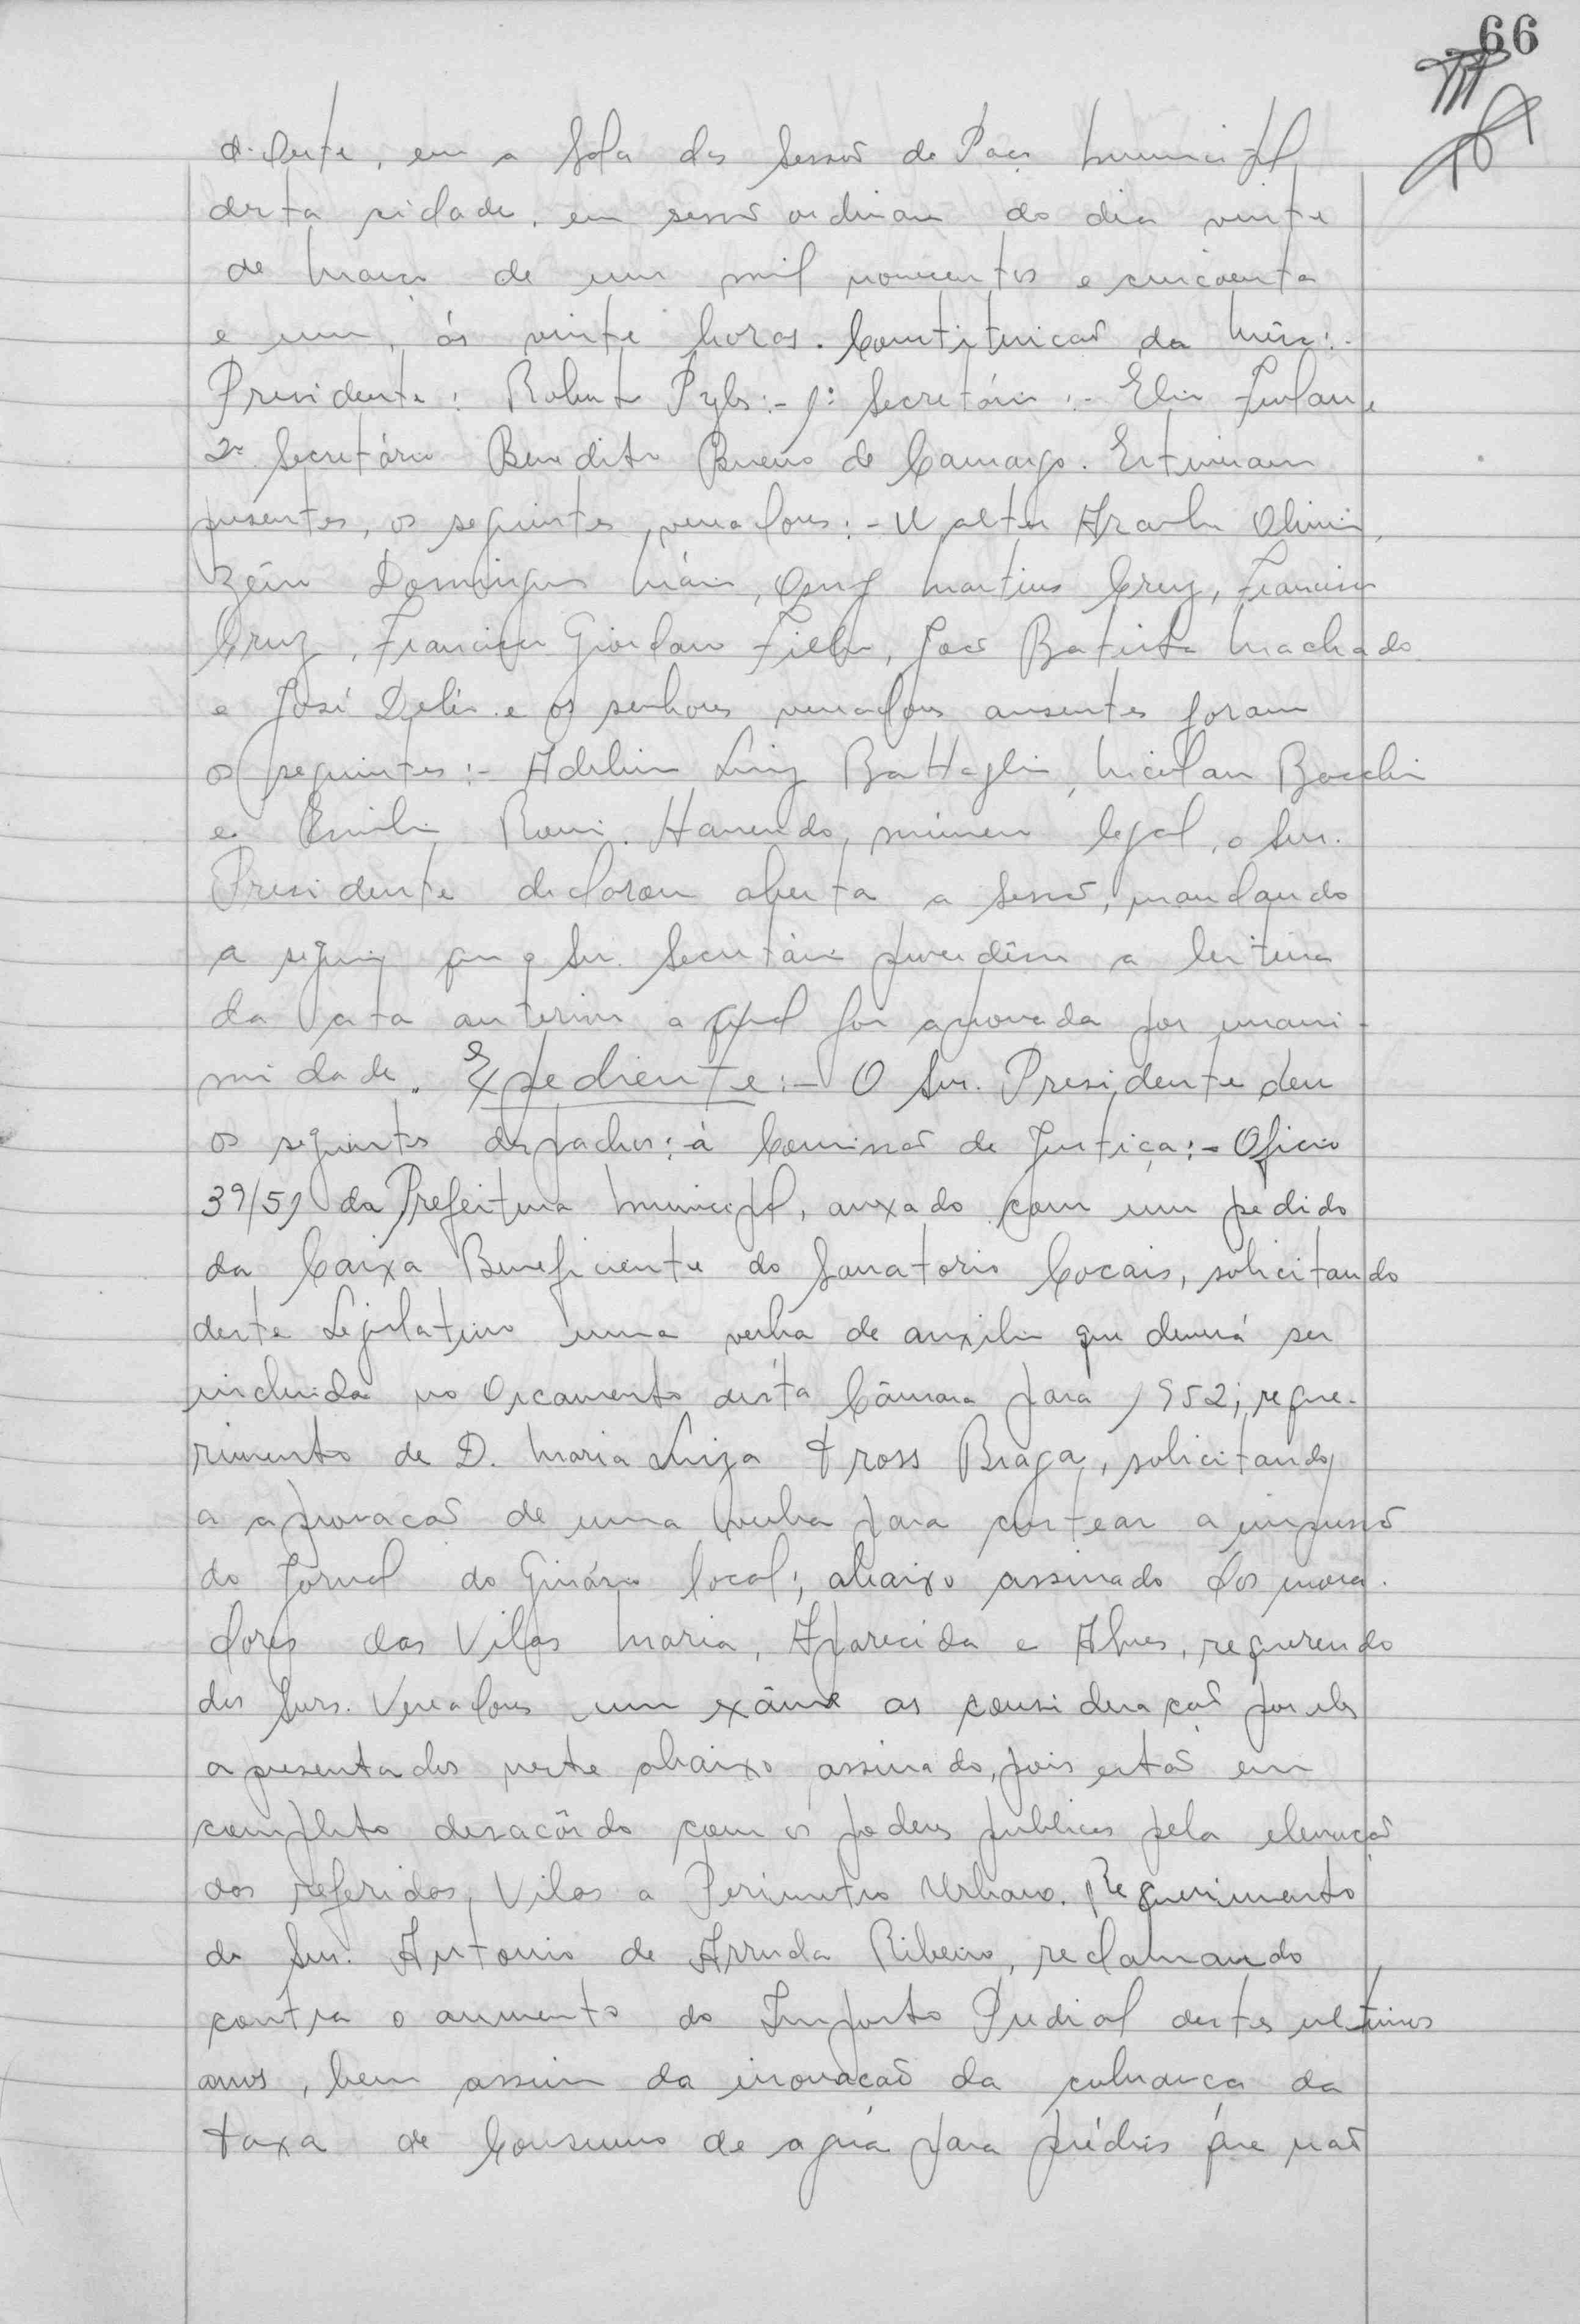 66
em a Sala das Sessões do Paço Municipal
desta cidade, em sessão ordinaria do dia vinte
de Março de um mil novecentos e cincoenta
e um, ás vinte horas. Constituição da Mêsa:-
Presidente: Roberto Pyles:- 1º Secretário:- Elio Furlan e
2º Secretário Benedito Bueno de Camargo. Estiveram
presentes, os seguintes vereadores:- Walter Aranha Oliveira,
Zéio Domingues Mário, Martins Cruz, Francisco
Cruz, Francisco Giordano Filho, João Batista Machado
e José Delú e os senhores vereadores ausentes foram
os seguintes:- Adelino Luiz Battaglin, Nicolau Bocchi
e Emilio Rossi. Havendo, número legal, o Snr.
Presidente declarou aberta a sessão, mandando
a seguir que o Snr. Secretário procedêsse a leitura
da ata anterior a qual foi aprovada por unani-
midade. Expediente:- O Snr. Presidente deu
os seguintes despachos: á Comissão de Justiça:- Oficio
39/51 da Prefeitura Municipal, anxado com um pedido
da Caixa Beneficiente do Sanatorio Cocais, solicitando
deste Legislativo uma verba de auxilio que deverá ser
incluida no Orcamento desta Câmara para 1952; reque-
rimento de D. Maria Luiza Tross Braga, solicitando
a aprovacão de uma verba para custear a impressão
do Jornal do Ginásio local; abaixo assinado dos mora-
dores das Vilas Maria, Aparecida e Alves, requerendo
dos Snrs. Vereadores um exâme as consideração por eles
apresentados neste abaixo assinado, pois estão em
completo desacôrdo com os poderes publicos pela elevação
das referidas Vilas a Perimetro Urbano. Requerimento
do Snr. Antonio de Arruda Ribeiro, reclamando
contra o aumento do Imposto Predial destes ultimos
anos, bem assim da inovacão da cobrança da
taxa de Consumo de agua para prédios que não